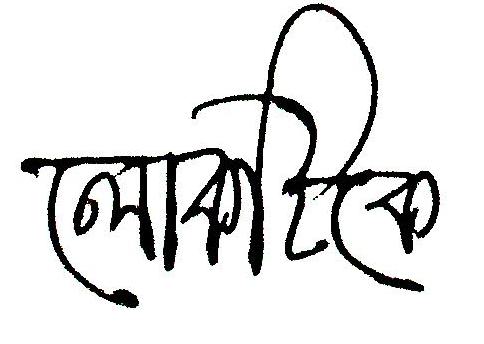 লোকটিকে